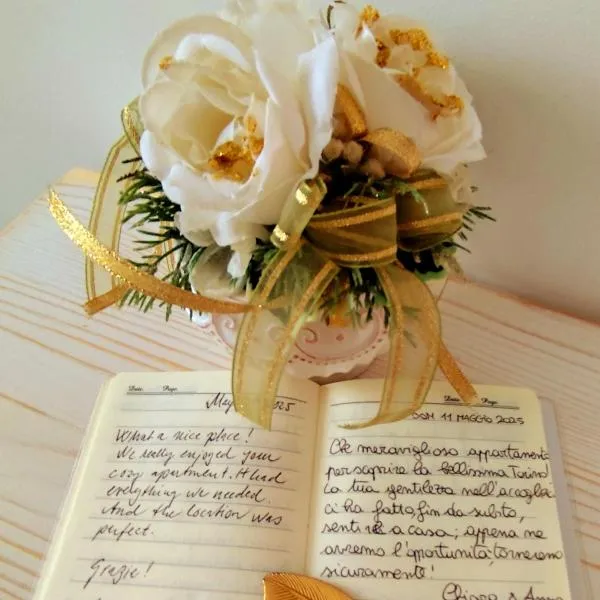 Date: Page:
May 2025
What a nice place!
We really enjoyed your
cozy apartment. It had
everything we needed.
And the location was
perfect.
Grazie!
Date: Page:
DOM 11 MAGGIO 2025
Che meraviglioso appartamento
per scoprire la bellissima Torino!
La tua gentilezza nell'accoglie
ci ha fatto, fin da subito,
sentire a casa; appena ne
avremo l'opportunità, torneremo
sicuramente!
Chiara & Anna